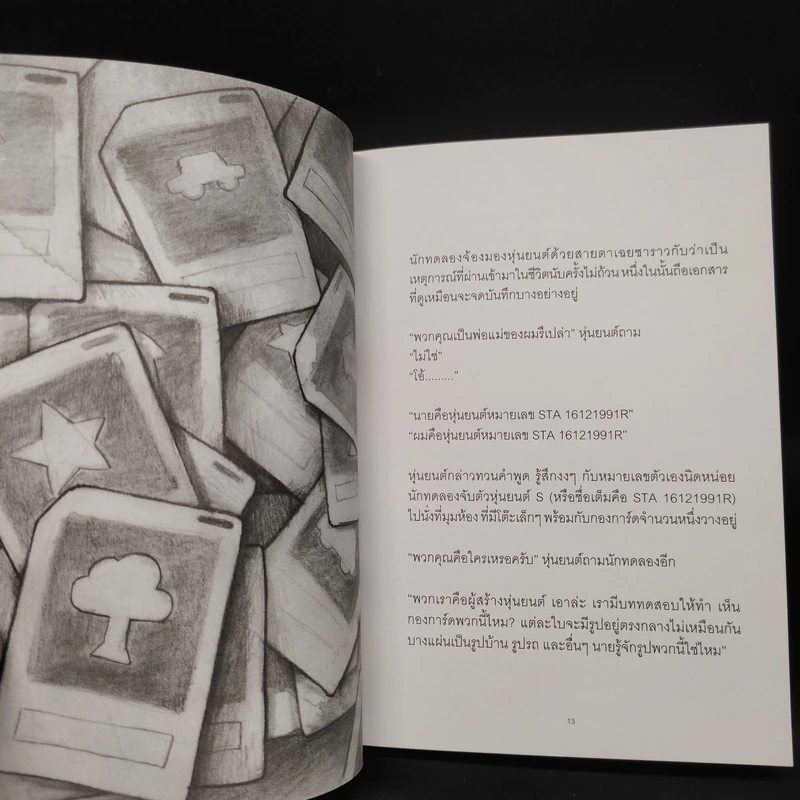 นักทดลองจ้องมองหุ่นยนต์ด้วยสายตาเฉยชาราวกับว่าเป็น
เหตุการณ์ที่ผ่านเข้ามาในชีวิตนับครั้งไม่ถ้วน หนึ่งในนั้นถือเอกสาร
ที่ดูเหมือนจะจดบันทึกบางอย่างอยู่
“พวกคุณเป็นพ่อแม่ของผมรึเปล่า” หุ่นยนต์ถาม
“ไม่ใช่”
“โอ้.........”
“นายคือหุ่นยนต์หมายเลข STA 16121991R”
“ผมคือหุ่นยนต์หมายเลข STA 16121991R”
หุ่นยนต์กล่าวทวนคำพูด รู้สึกงงๆ กับหมายเลขตัวเองนิดหน่อย
นักทดลองจับตัวหุ่นยนต์ S (หรือชื่อเต็มคือ STA 16121991R)
ไปนั่งที่มุมห้อง ที่มีโต๊ะเล็กๆ พร้อมกับกองการ์ดจำนวนหนึ่งวางอยู่
“พวกคุณคือใครเหรอครับ” หุ่นยนต์ถามนักทดลองอีก
“พวกเราคือผู้สร้างหุ่นยนต์ เอาล่ะ เรามีบททดสอบให้ทำ เห็น
กองการ์ดพวกนี้ไหม? แต่ละใบจะมีรูปอยู่ตรงกลางไม่เหมือนกัน
บางแผ่นเป็นรูปบ้าน รูปรถ และอื่นๆ นายรู้จักรูปพวกนี้ใช่ไหม”
13